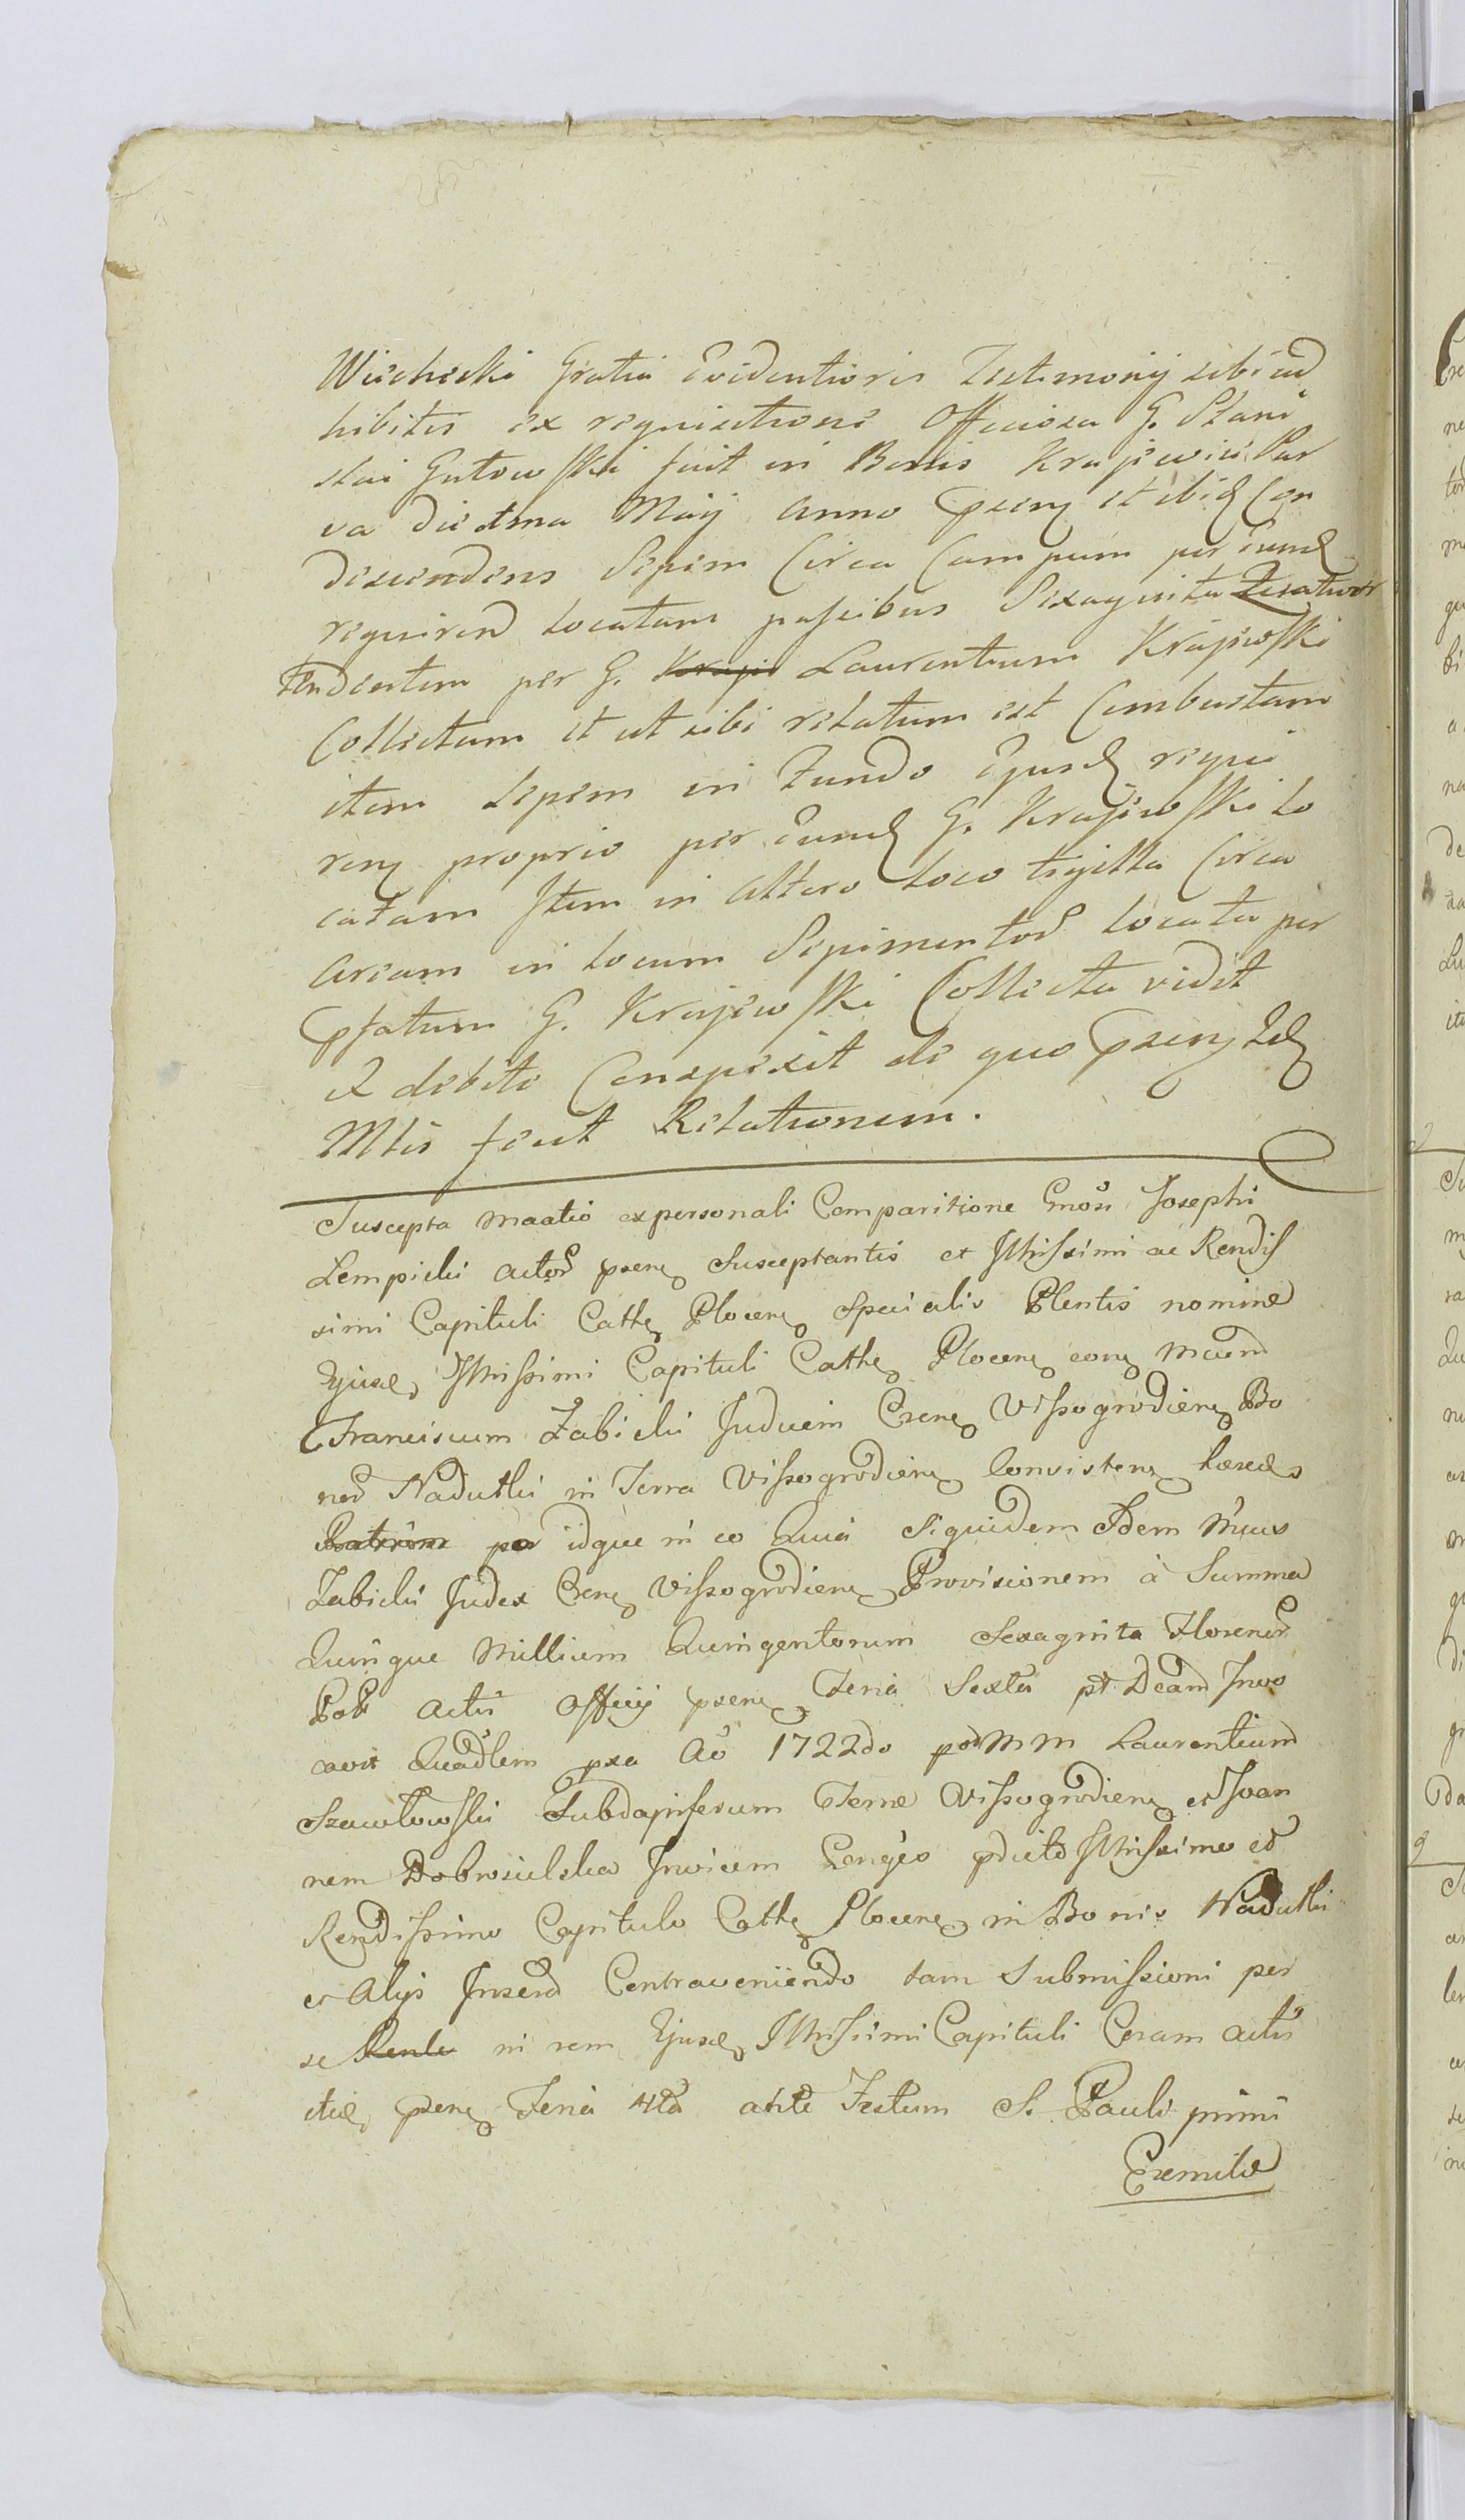 Wiechecki Gratia Evidentioris Testimonij sibi ad
hibitis ex requisitione Officiosa G. Stani
slai Gutowski fuit in Bonis Krajewice Par
va die 2ma Maij anno Praeng et ibid Con
descendens Sepim Circa Campum per eund
requirend locatam passibus Sexaginta Quatuor
tendentem per G. Kraje Laurentium Krajewski
Collectam et ut sibi relatum est Combustam
item sepem in Fundo Ejusd requi
reng proprio per Eund G. Krajewski lo
catam Item in altero loco tigilla Circa
aream in locum Sepimentor locata per
Pfatum G. Krajewski Collecta vidit
et debite Conspexit de quo Praeng
Mlis fecit Relationem.
Suscepta maatio ex personali Comparitione Gnosi Josephi
Lempicki actor praeng Susceptantis et Illrissimi ac Rendis
simi Capituli Cathe Plocen Specialis Plentis nomine
Ejusd Illrissimi Capituli Cathe Plocen cong Mcum
Franciscum Zabicki Judicem Cren Vissogrodien Bo
nor Nadutki in Terra Vissogrodien Consisten haered
Patrim per idque in eo Quia Siquidem Idem Mcus
Zabicki Judex Cren Vissogrodien Provisionem à Summa
Quinque Millium Quingentorum Sexaginta Florenor
Pol actis Officij praen Feria Sexta pt Dcam Invo
cavit Quadlem pxa Ao 1722do per MM Laurentium
Szawłowski Subdapiferum Terrae Vissogrodien et Joan
nem Dobrosielska Invicem Conges pdicto Illrissimo et
Rendissimo Capitulo Cathe Plocen in Bonis Nadutki
et Alijs Inserd Contraveniendo tam Submissioni per
se Rente in rem Ejusd Illrissimi Capituli Coram actis
itid praen Feria 4ta ante Festum S. Pauli primi
Eremitae